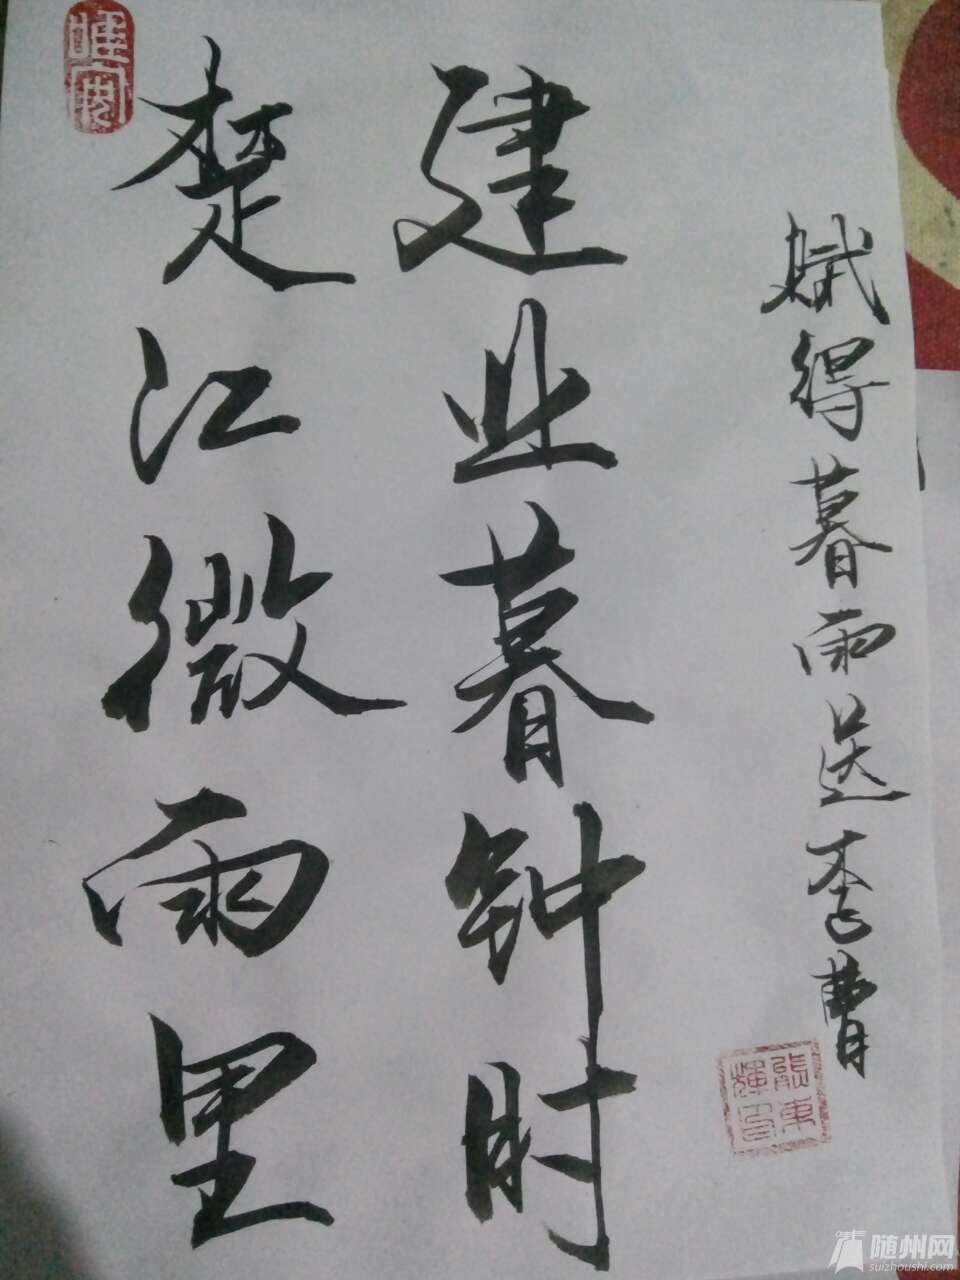 楚江微雨里
建业暮钟时
赋得暮雨送李曹
張東輝印
随州网
suizhoushi.com